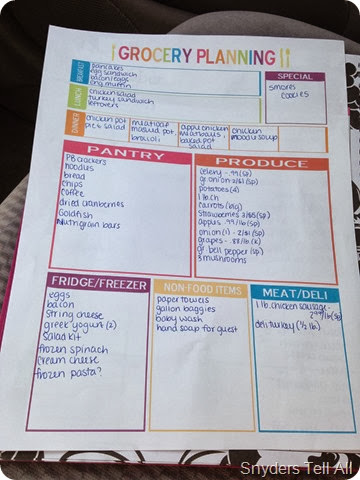 GROCERY PLANNING
BREAKFAST
pancakes
egg sandwich
bacon/eggs
eng muffin
SPECIAL
smores
cookies
LUNCH
chicken salad
turkey sandwich
leftovers
DINNER
chicken pot
pie & salad
meatloaf
mashed pot.
broccoli
apple chicken
meatballs,
baked pot
salad
chicken
noodle soup
PANTRY
PB crackers
noodles
bread
chips
coffee
dried cranberries
Goldfish
Nutrigrain bars
PRODUCE
celery - .99 (sp)
gr. onion - 2/$1 (sp)
potatoes (4)
carrots (big)
strawberries 2/$5 (sp)
apples .99/lb (sp)
onion (1) - 2/$1 (sp)
grapes - .88/lb (K)
gr. bell pepper (sp)
mushrooms
FRIDGE/FREEZER
eggs
bacon
string cheese
greek yogurt (2)
salad kit
frozen spinach
cream cheese
frozen pasta?
NON-FOOD ITEMS
paper towels
gallon baggies
baby wash
hand soap for guest
MEAT/DELI
1 lb. chicken sausage -
2.99/lb (sp)
deli turkey (1/2 lb)
Snyders Tell All